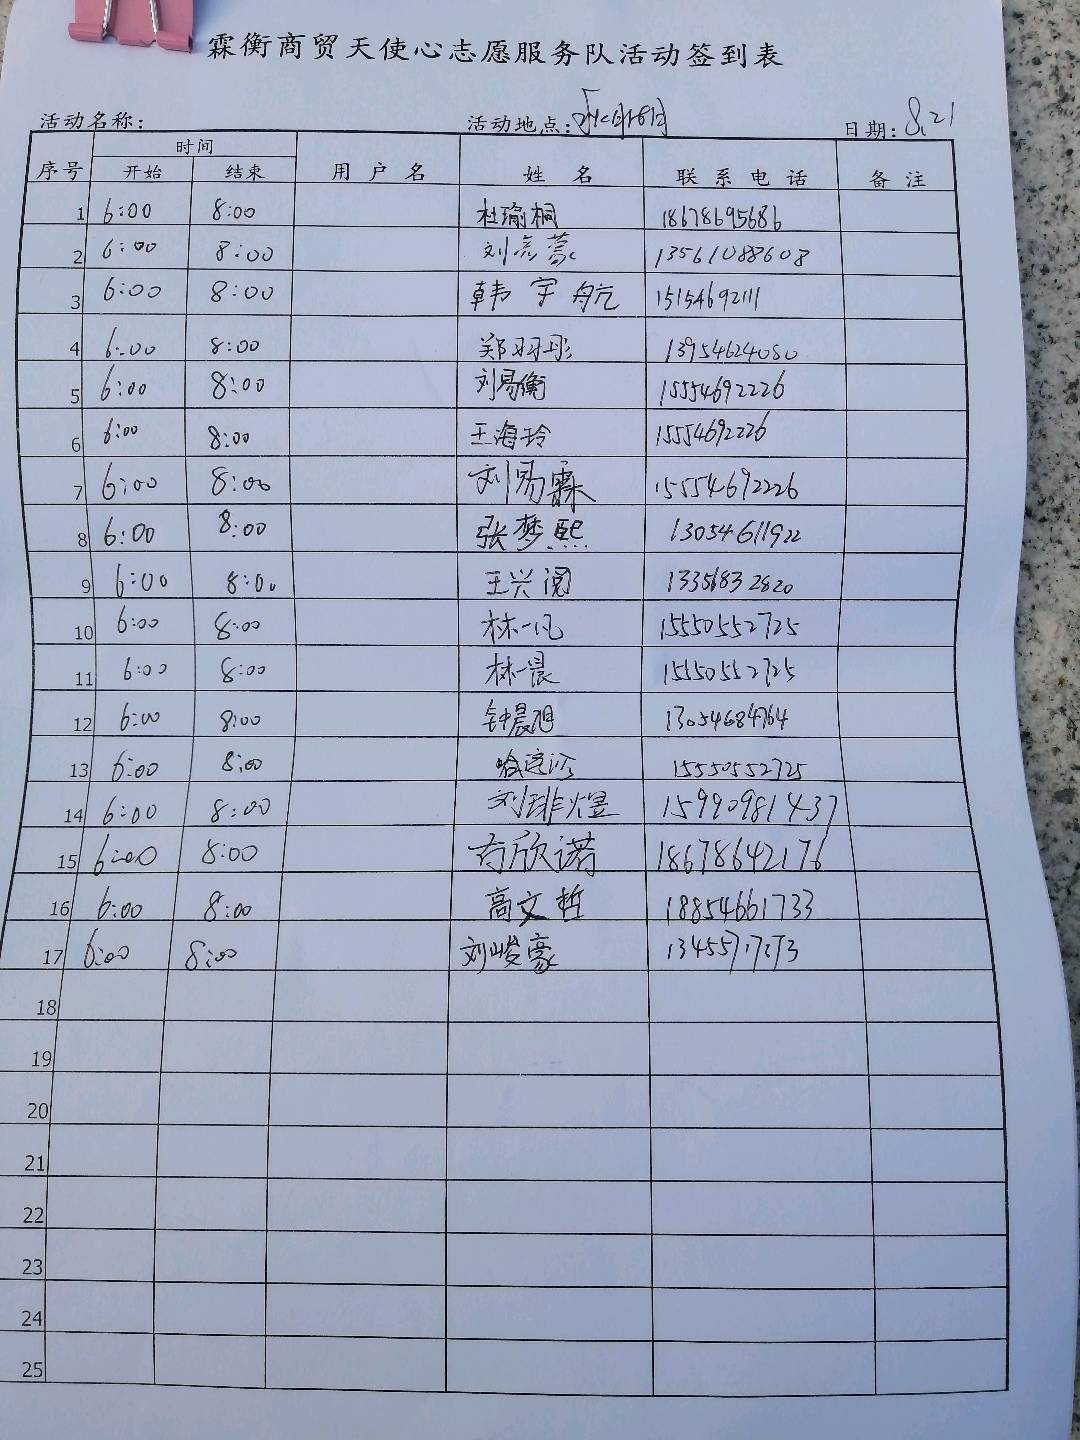 霖衡商贸天使心志愿服务队活动签到表
活动名称： 活动地点： 日期：8.21
序号 时间 用户名 姓名 联系电话 备注
开始 结束
1 6:00 8:00 杜瑜桐 18678695686
2 6:00 8:00 刘彦蒙 13561088608
3 6:00 8:00 韩宇航 15154692111
4 6:00 8:00 郑羽彤 13954624080
5 6:00 8:00 刘易衡 15554692226
6 6:00 8:00 王海玲 15554692226
7 6:00 8:00 刘易霖 15554692226
8 6:00 8:00 张梦熙 13054611922
9 6:00 8:00 王兴阅 13351832820
10 6:00 8:00 林一凡 15550552725
11 6:00 8:00 林一晨 15550552725
12 6:00 8:00 钟晨旭 13054684764
13 6:00 8:00 15550552725
14 6:00 8:00 刘琲煜 15990981437
15 6:00 8:00 欣诺 18678642176
16 6:00 8:00 高文哲 18854661733
17 6:00 8:00 刘峻豪 13455717273
18
19
20
21
22
23
24
25